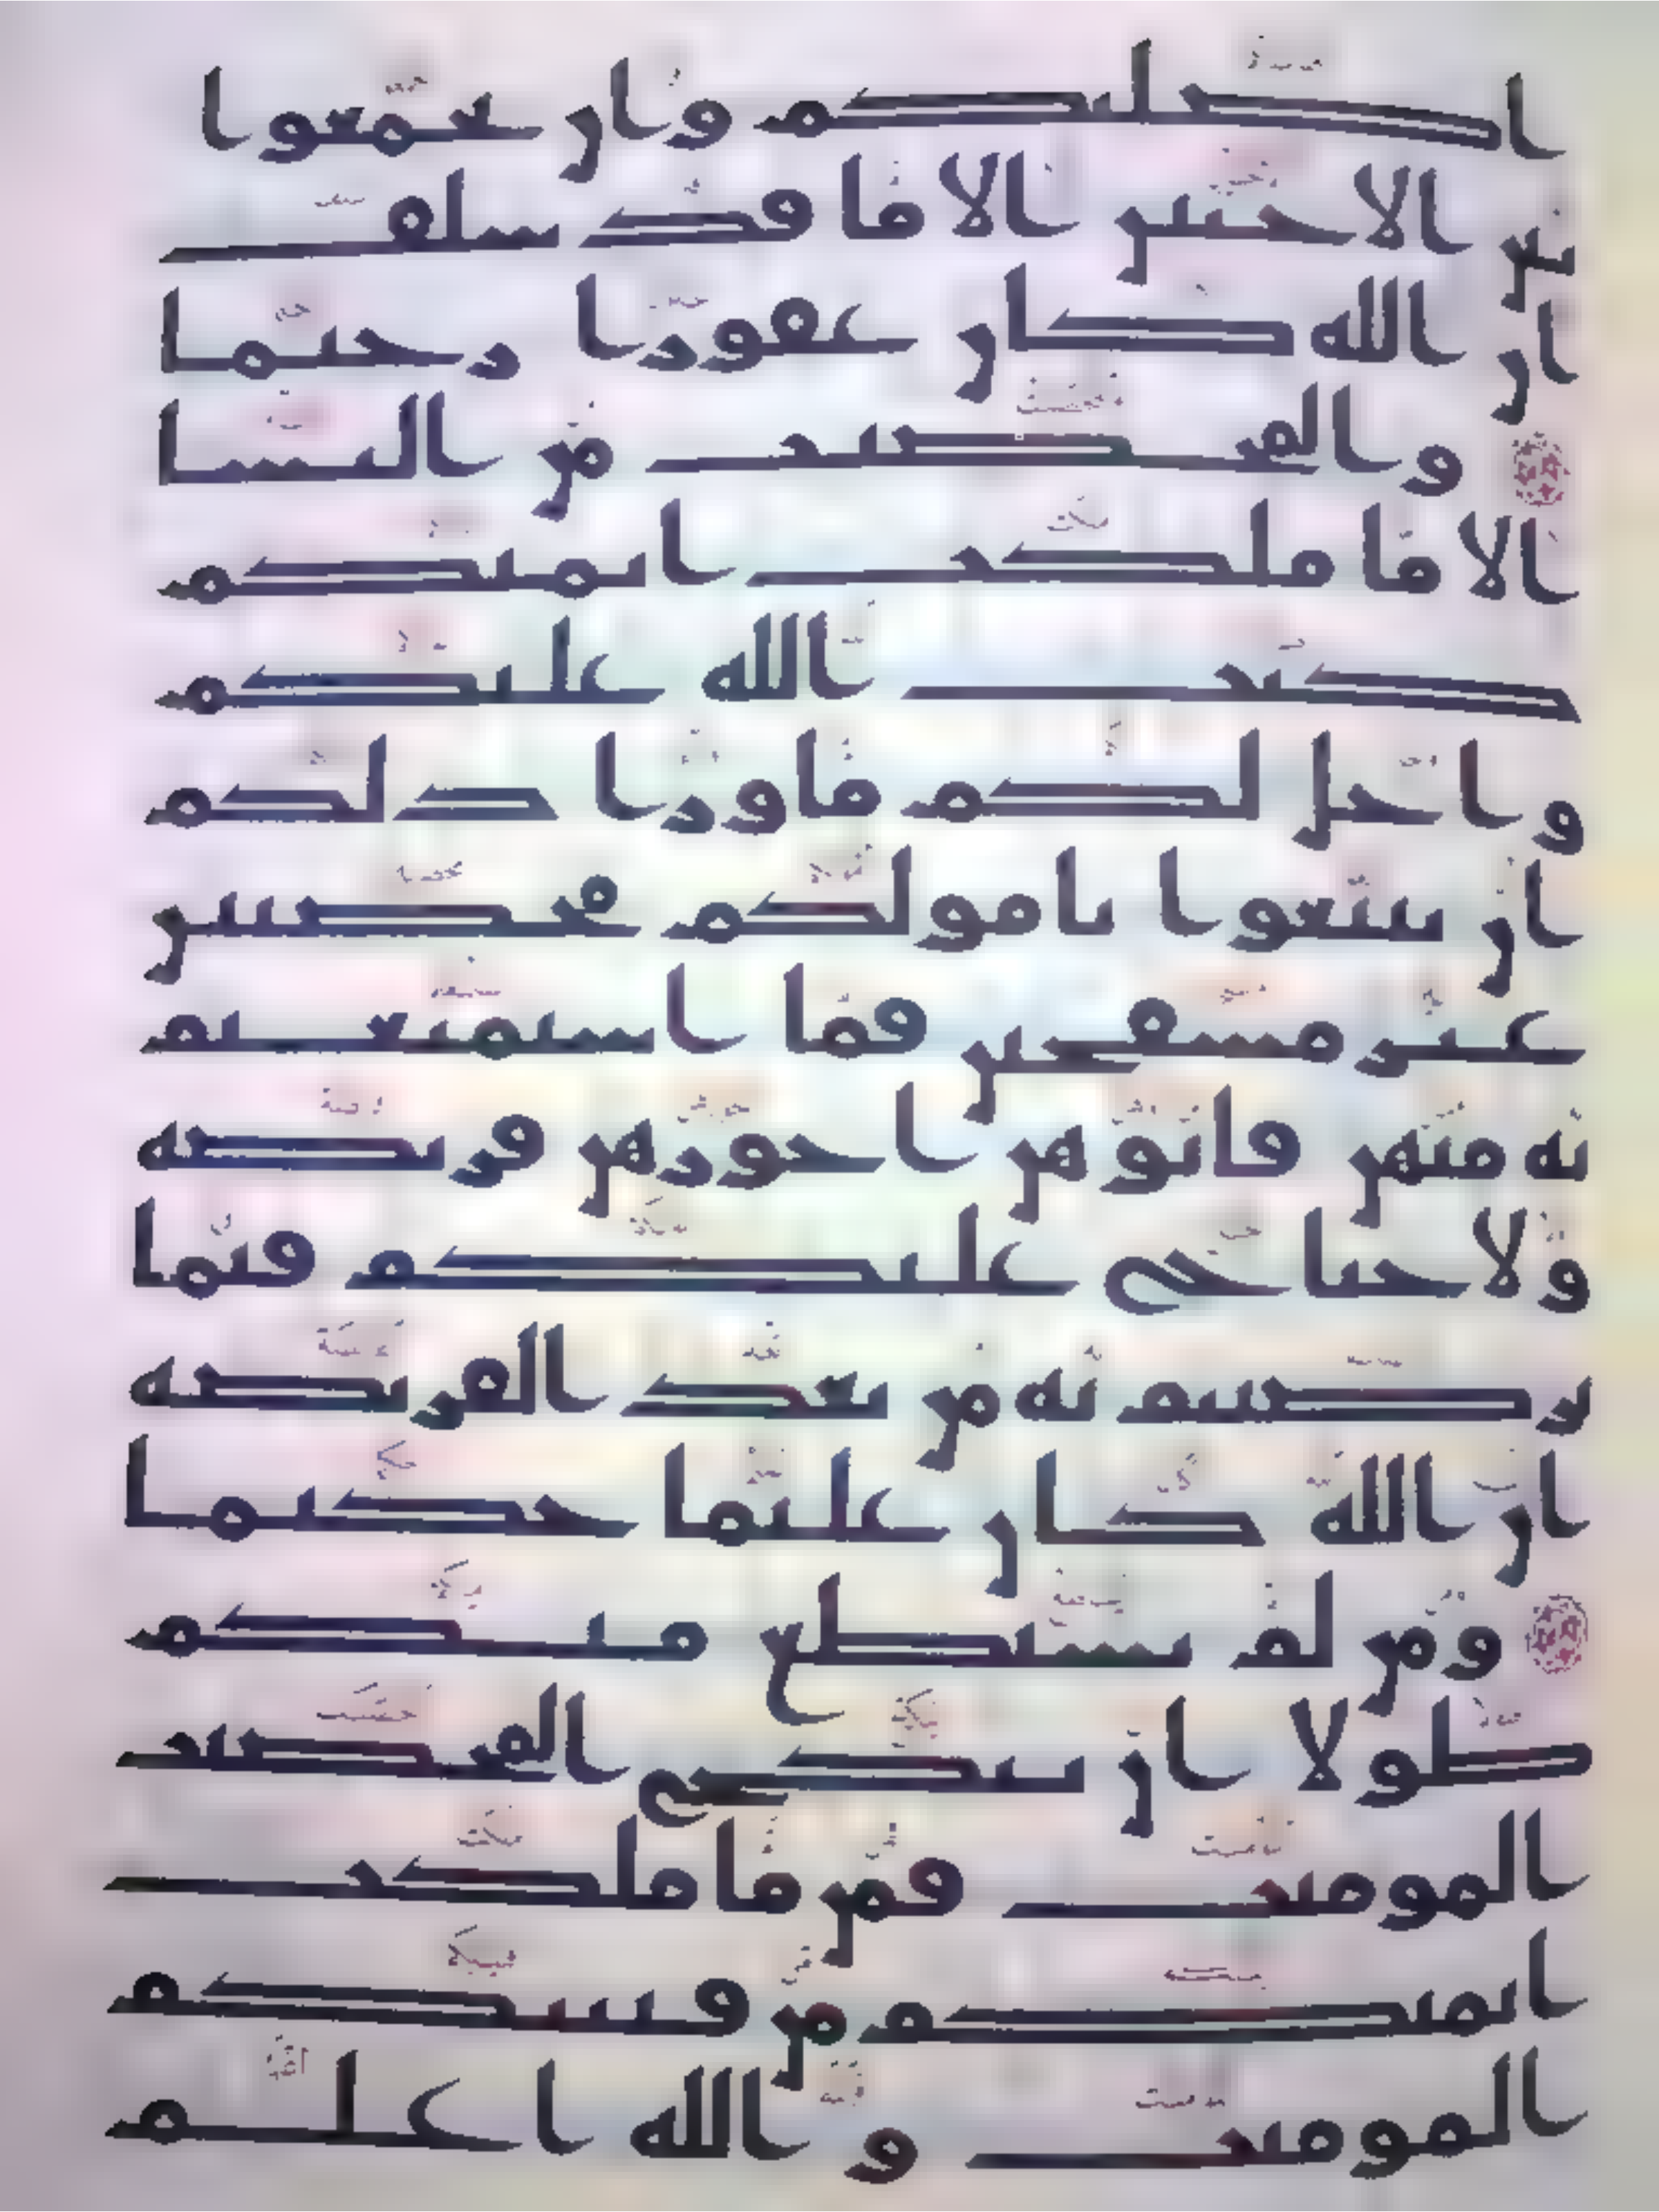 اصلبكم وان تجمعوا
بين الاختين الا ما قد سلف
ان الله كان غفورا رحيما
والمحصنت من النسا
الا ما ملكت ايمنكم
كتب الله عليكم
واحل لكم ما ورا ذلكم
ان تبتغوا بامولكم محصنين
غير مسفحين فما استمتعتم
به منهن فاتوهن اجورهن فريضة
ولا جناح عليكم فيما
ترضيتم به من بعد الفريضة
ان الله كان عليما حكيما
ومن لم يستطع منكم
طولا ان ينكح المحصنت
المومنت فمن ما ملكت
ايمنكم من فتيتكم
المومنت والله اعلم